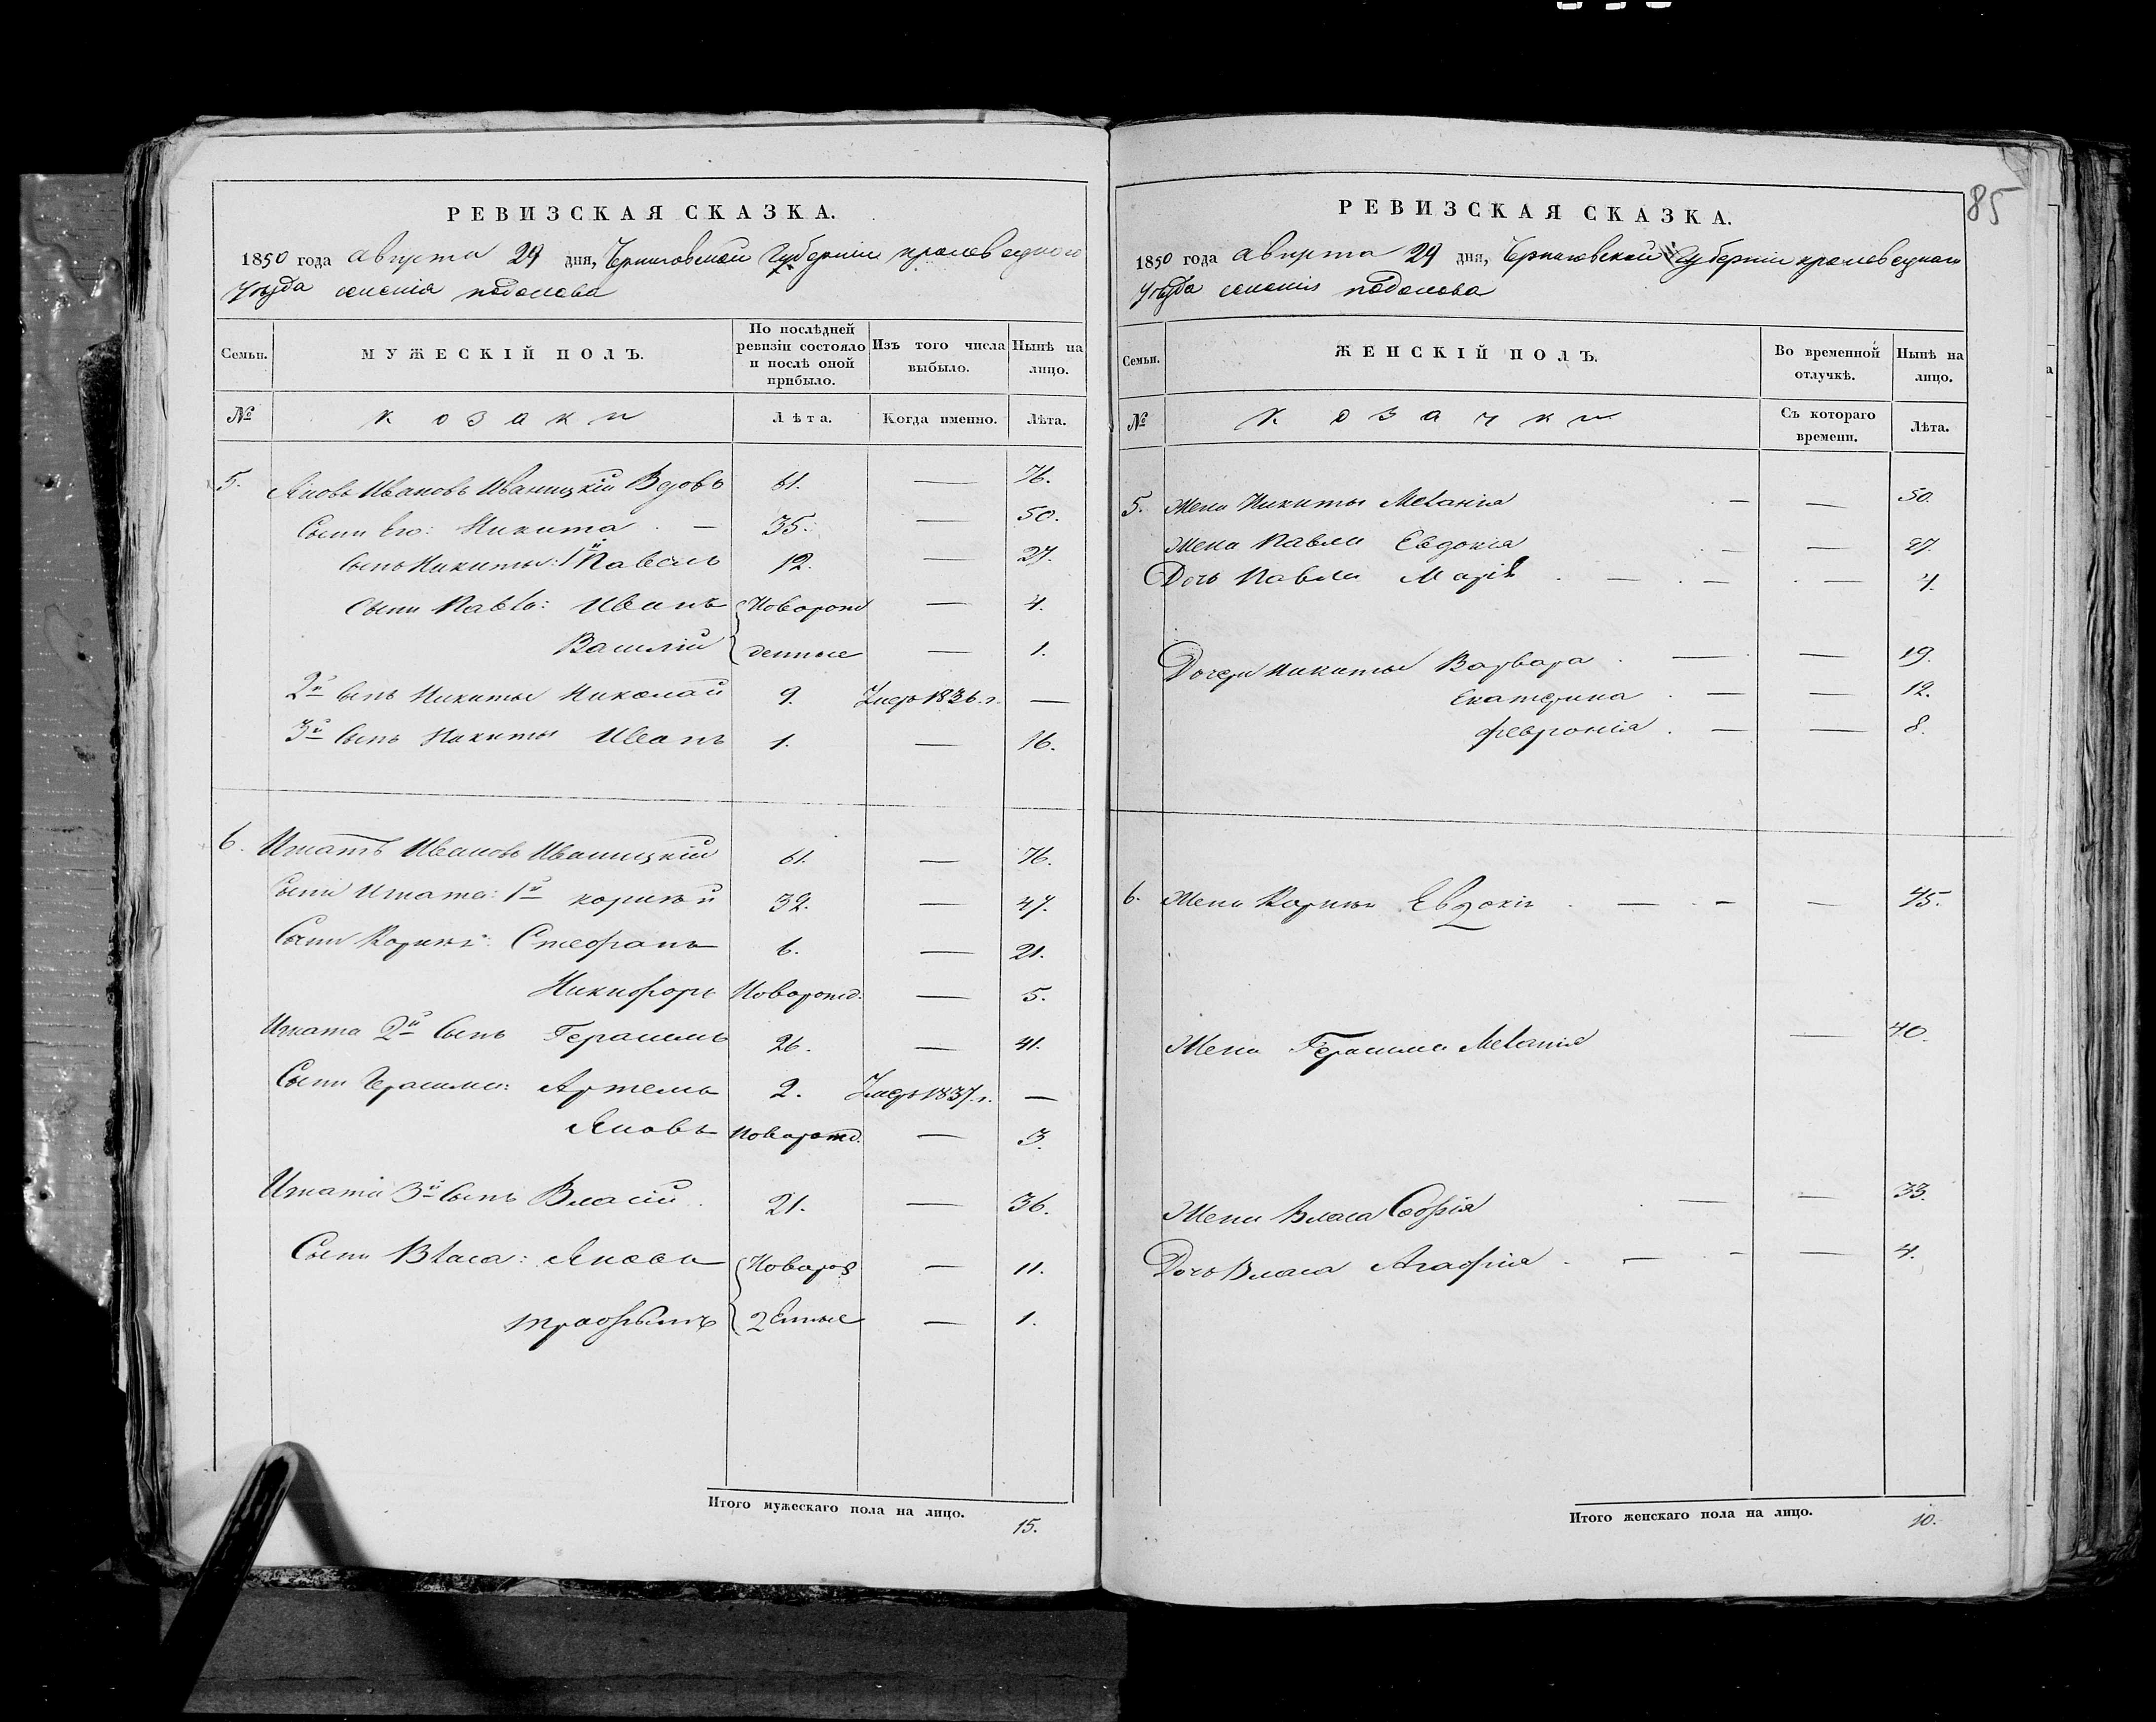 РЕВИЗСКАЯ СКАЗКА.
1850 года августа 29 дня, Черниговской Губерніи кролевецкаго
уѣзда селенія подолова
Семьи. МУЖЕСКІЙ ПОЛЪ. По послѣдней ревизіи состояло и послѣ оной прибыло. Изъ того числа выбыло. Нынѣ на лицо.
№ козаки Лѣта. Когда именно. Лѣта.
5. Яковъ Ивановъ Иваницкій Вдовъ 61. — 76.
Сынъ Его: Никита — 35. — 50.
Сынъ Никиты: 1й Павелъ 12. — 27.
Сыны Павла: Иванъ Новорож — 4.
Василій денные — 1.
2й Сынъ Никиты Николай 9. Умеръ 1836.г. —
3й Сынъ Никиты Иванъ 1. — 16.
6. Игнатъ Ивановъ Иваницкій 61. — 76.
Сыны Игната: 1й корнѣй 32. — 47.
Сыны Корнѣя: Стефанъ 6. — 21.
Никифоръ Новорожд. — 5.
Игната 2й Сынъ Герасимъ 26. — 41.
Сыны Герасима: Артемъ 2. Умеръ 1837.г. —
Яковъ Новорожд. — 3.
Игната 3й Сынъ Власій 21. — 36.
Сыны Власа: Яковъ Новорож — 11.
трофимъ денные — 1.
Итого мужескаго пола на лицо. 15.
85
РЕВИЗСКАЯ СКАЗКА.
1850 года августа 29 дня, Черниговской Губерніи кролевецкаго
уѣзда селенія подолова
Семьи. ЖЕНСКІЙ ПОЛЪ. Во временной отлучкѣ. Нынѣ на лицо.
№ козачки Съ котораго времени. Лѣта.
5. Жена Никиты Меланія — — 50.
Жена Павла Евдокія — — 27.
Дочь Павла Марія — — — 4.
Дочери Никиты Варвара — — 19.
Екатерина — — 12.
Февронія — — 8.
6. Жена Корнѣя Евдокія — — — 45.
Жена Герасима Меланія — 40.
Жена Власа Софія — — 33.
Дочь Власа Агафія — — — 4.
Итого женскаго пола на лицо. 10.